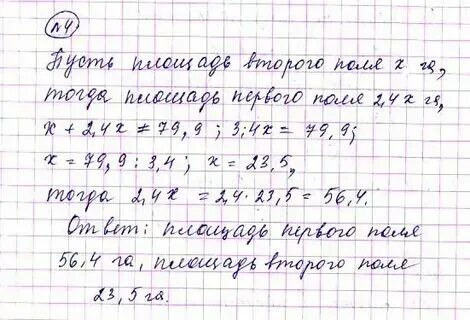 №4
Пусть площадь второго поля х га,
тогда площадь первого поля 2,4х га,
х + 2,4х = 79,9 ; 3,4х = 79,9;
х = 79,9 : 3,4 ; х = 23,5,
тогда 2,4х = 2,4 · 23,5 = 56,4.
Ответ: площадь первого поля
56,4 га, площадь второго поля
23,5 га.